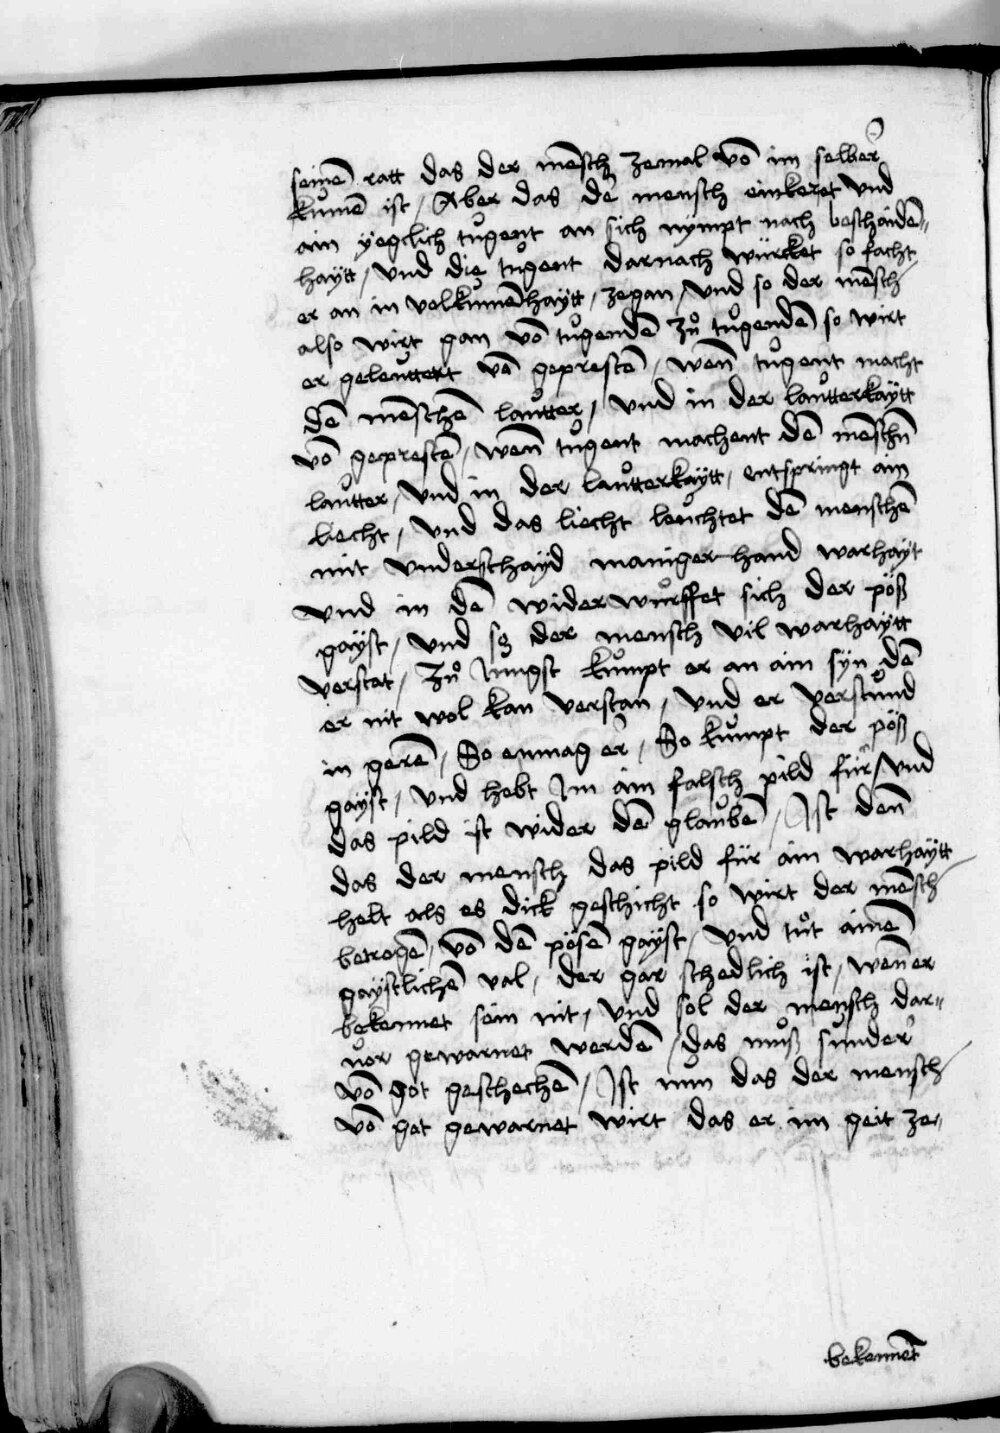 seinē ratt das der mēsch zemal vō im selber
kumē ist / Aber das dē mensch einkeret vnd
ain yegclich tůgent an sich nympt nach beschaidē„
haÿtt / vnd die tůgent darnach würcket so facht
er an in volkumēhaÿtt / zegan / vnd so der mēsch
also wirt gan vō tůgendē zů tůgendē so wirt
er geleuttert vō geprestē / wen̄ tůgent macht
dē mēschē lautter / vnd in der lautterkaÿtt
vō geprestē / wen̄ tůgent machent dē mēschn̄
lautter / vnd in der lautterkaÿtt / entspringt ain
liecht / vnd das liecht leuchtet dē menschē
mit vnderschayd maniger hand warhaÿt
vnd in dē widerwürffet sich der pöß
gaÿst / vnd so der mensch vil warhaÿtt
verstat / zů Jungst kumpt er an ain syn dē
er nit wol kan verstan / vnd er verstund
in gerē / So enmag er / So kumpt der pöß
gaÿst / vnd hebt Im ain falsch pild für / vnd
das pild ist wider dē glaubē / Ist den̄
das der mensch das pild für ain warhaÿtt
helt als es dick geschicht so wirt der mēsch
betrogē / vō dē pösē gaÿst / vnd tůt ainē
gaÿstlichē val / der gar schedlich ist / wen̄ er
bekennet sein nit / vnd sol der mensch dar„
vor gewarnet werdē / das můß sunder
vō got geschechē / Ist nun das der mensch
vō got gewarnet wirt das er im geit ze„
bekennēt